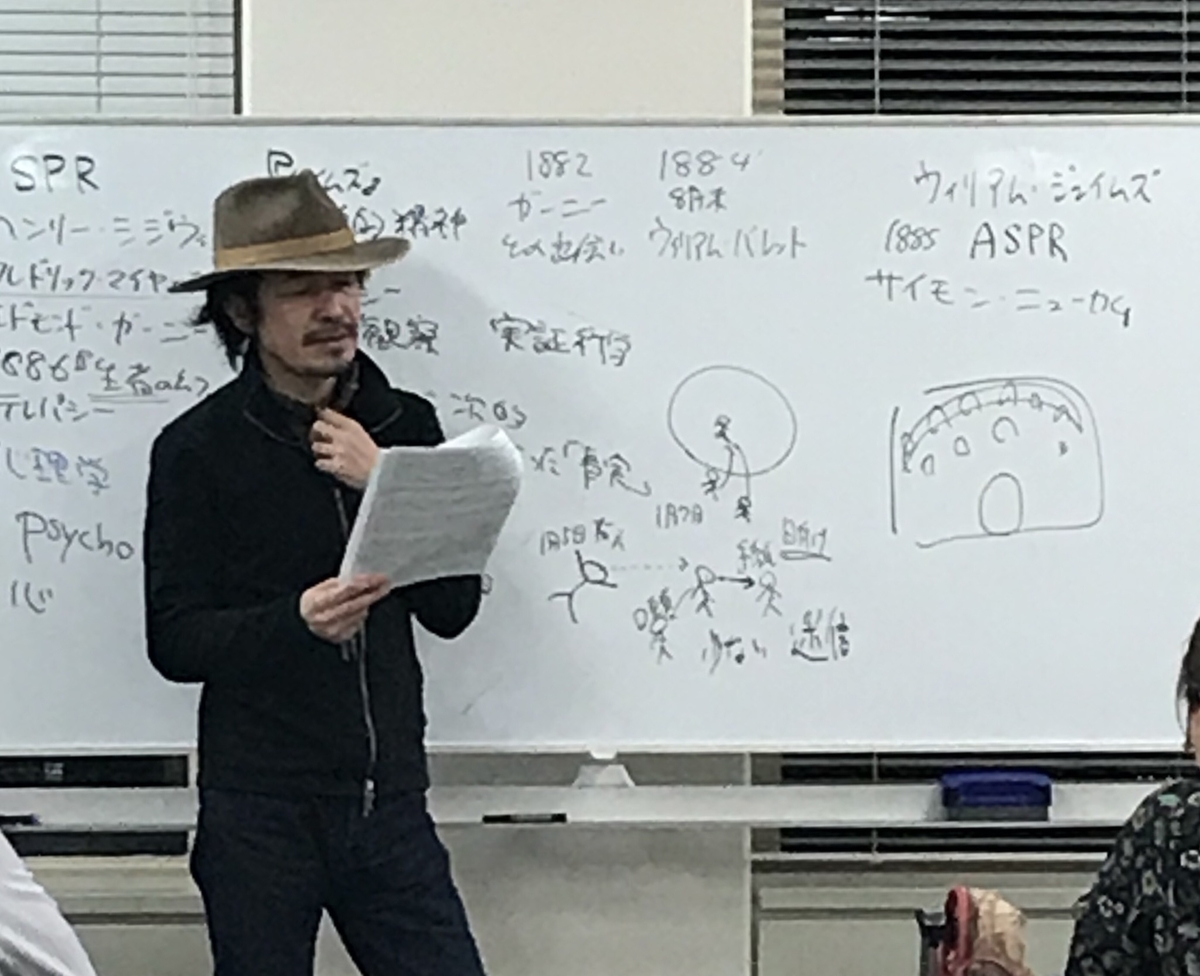 SPR
ヘンリー・シジウィ
イムズ
精神
1882
ガーニー
との出会い
1884
8月末
ウィリアム・バレット
ウィリアム・ジェイムズ
1885 ASPR
サイモン・ニューカム
ルドリック・マイヤ
エドモンド・ガーニー
観察
実証科学
886
生者の
テレパシー
次的
心理学
「事実」
Psycho
心
1月7日
1月5日 友人
手紙
日付け
少ない 送信